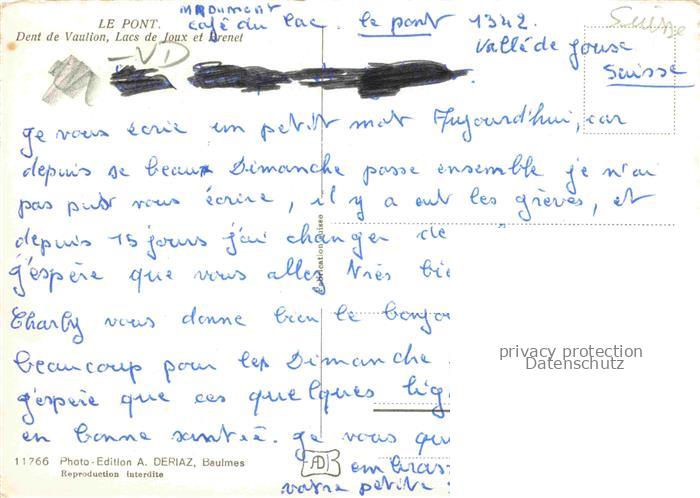 LE PONT.
Dent de Vaulion, Lacs de Joux et Brenet
café du lac. le pont 1342.
Vallé de Jouse
Suisse
Suisse
VD
je vous écrie un petit mot Aujourd'hui, car
depuis se beaux Dimanche passe ensemble je n'ai
pas put vous écrire, il y a eut les grèves, et
depuis 15 jours j'ai changer de
j'espère que vous allez très bie
Charly vous donne bien le bonjo
beaucoup pour les Dimanche
j'espère que ces quelques lig
en bonne santée. je vous qu
embras
votre petite
privacy protection
Datenschutz
11766 Photo-Edition A. DERIAZ, Baulmes
Reproduction interdite
AD